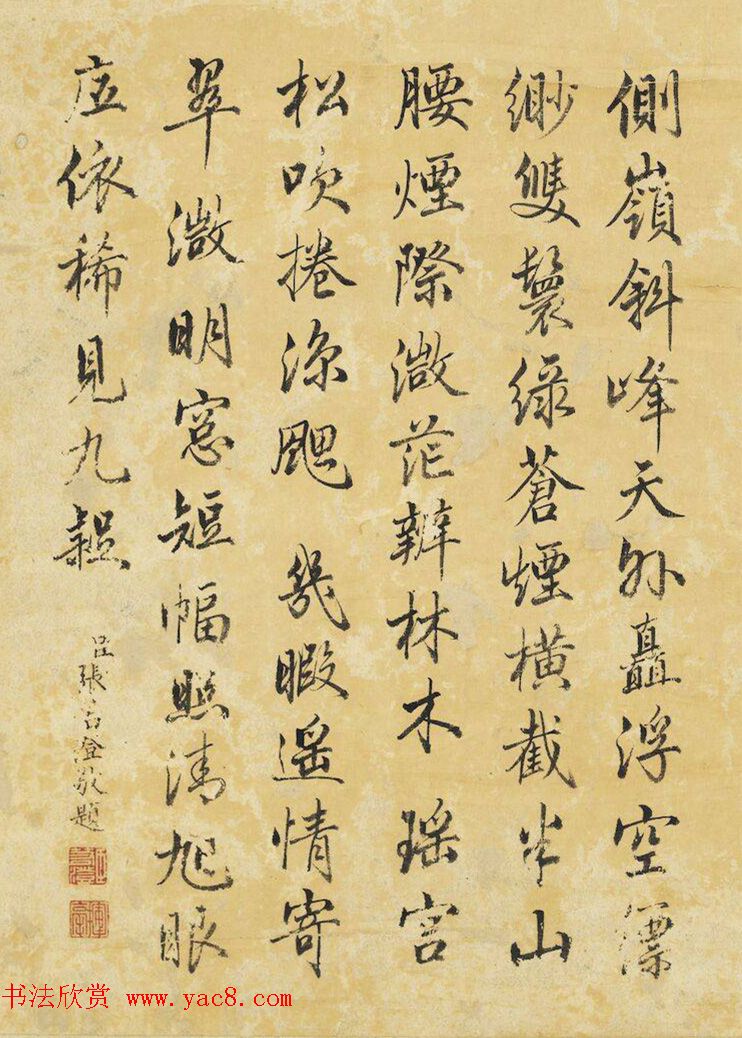 側嶺斜峰天外矗浮空縹
緲雙鬟綠蒼煙橫截半山
腰煙際微茫辨林木 瑤宮
松吹捲涼颸 幾暇遙情寄
翠微明窓短幅照清旭眼
底依稀見九
臣張若澄敬題
书法欣赏 www.yac8.com